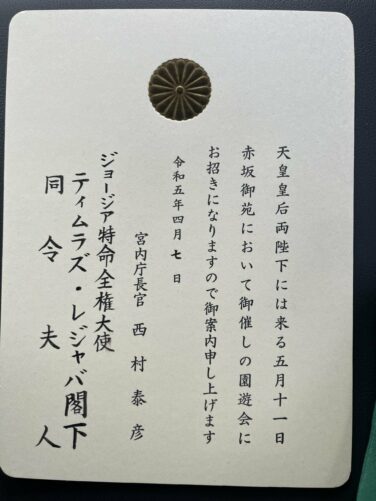 天皇皇后両陛下には来る五月十一日
赤坂御苑において御催しの園遊会に
お招きになりますので御案内申し上げます
令和五年四月七日
宮内庁長官 西村泰彦
ジョージア特命全権大使
ティムラズ・レジャバ閣下
同令夫人